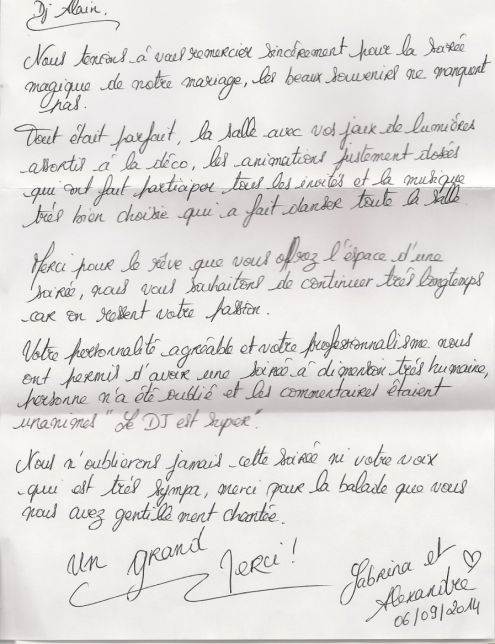 Dj Alain.
Nous tenons à vous remercier sincèrement pour la soirée
magique de notre mariage, les beaux souvenirs ne manquent
pas.
Tout était parfait, la salle avec vos jeux de lumières
assortis à la déco, les animations justement dosées
qui ont fait participer tous les invités et la musique
très bien choisie qui a fait danser toute la salle.
Merci pour le rêve que vous offrez l'éspace d'une
soirée, nous vous souhaitons de continuer très longtemps
car on ressent votre passion.
Votre personnalité agréable et votre professionnalisme nous
ont permis d'avoir une soirée à dimension très humaine,
personne n'a été oublié et les commentaires étaient
unanimes "Le DJ est super".
Nous n'oublierons jamais cette soirée ni votre voix
qui est très sympa, merci pour la balade que vous
nous avez gentillement chantée.
Un grand Merci!
Sabrina et
Alexandre
06/09/2014